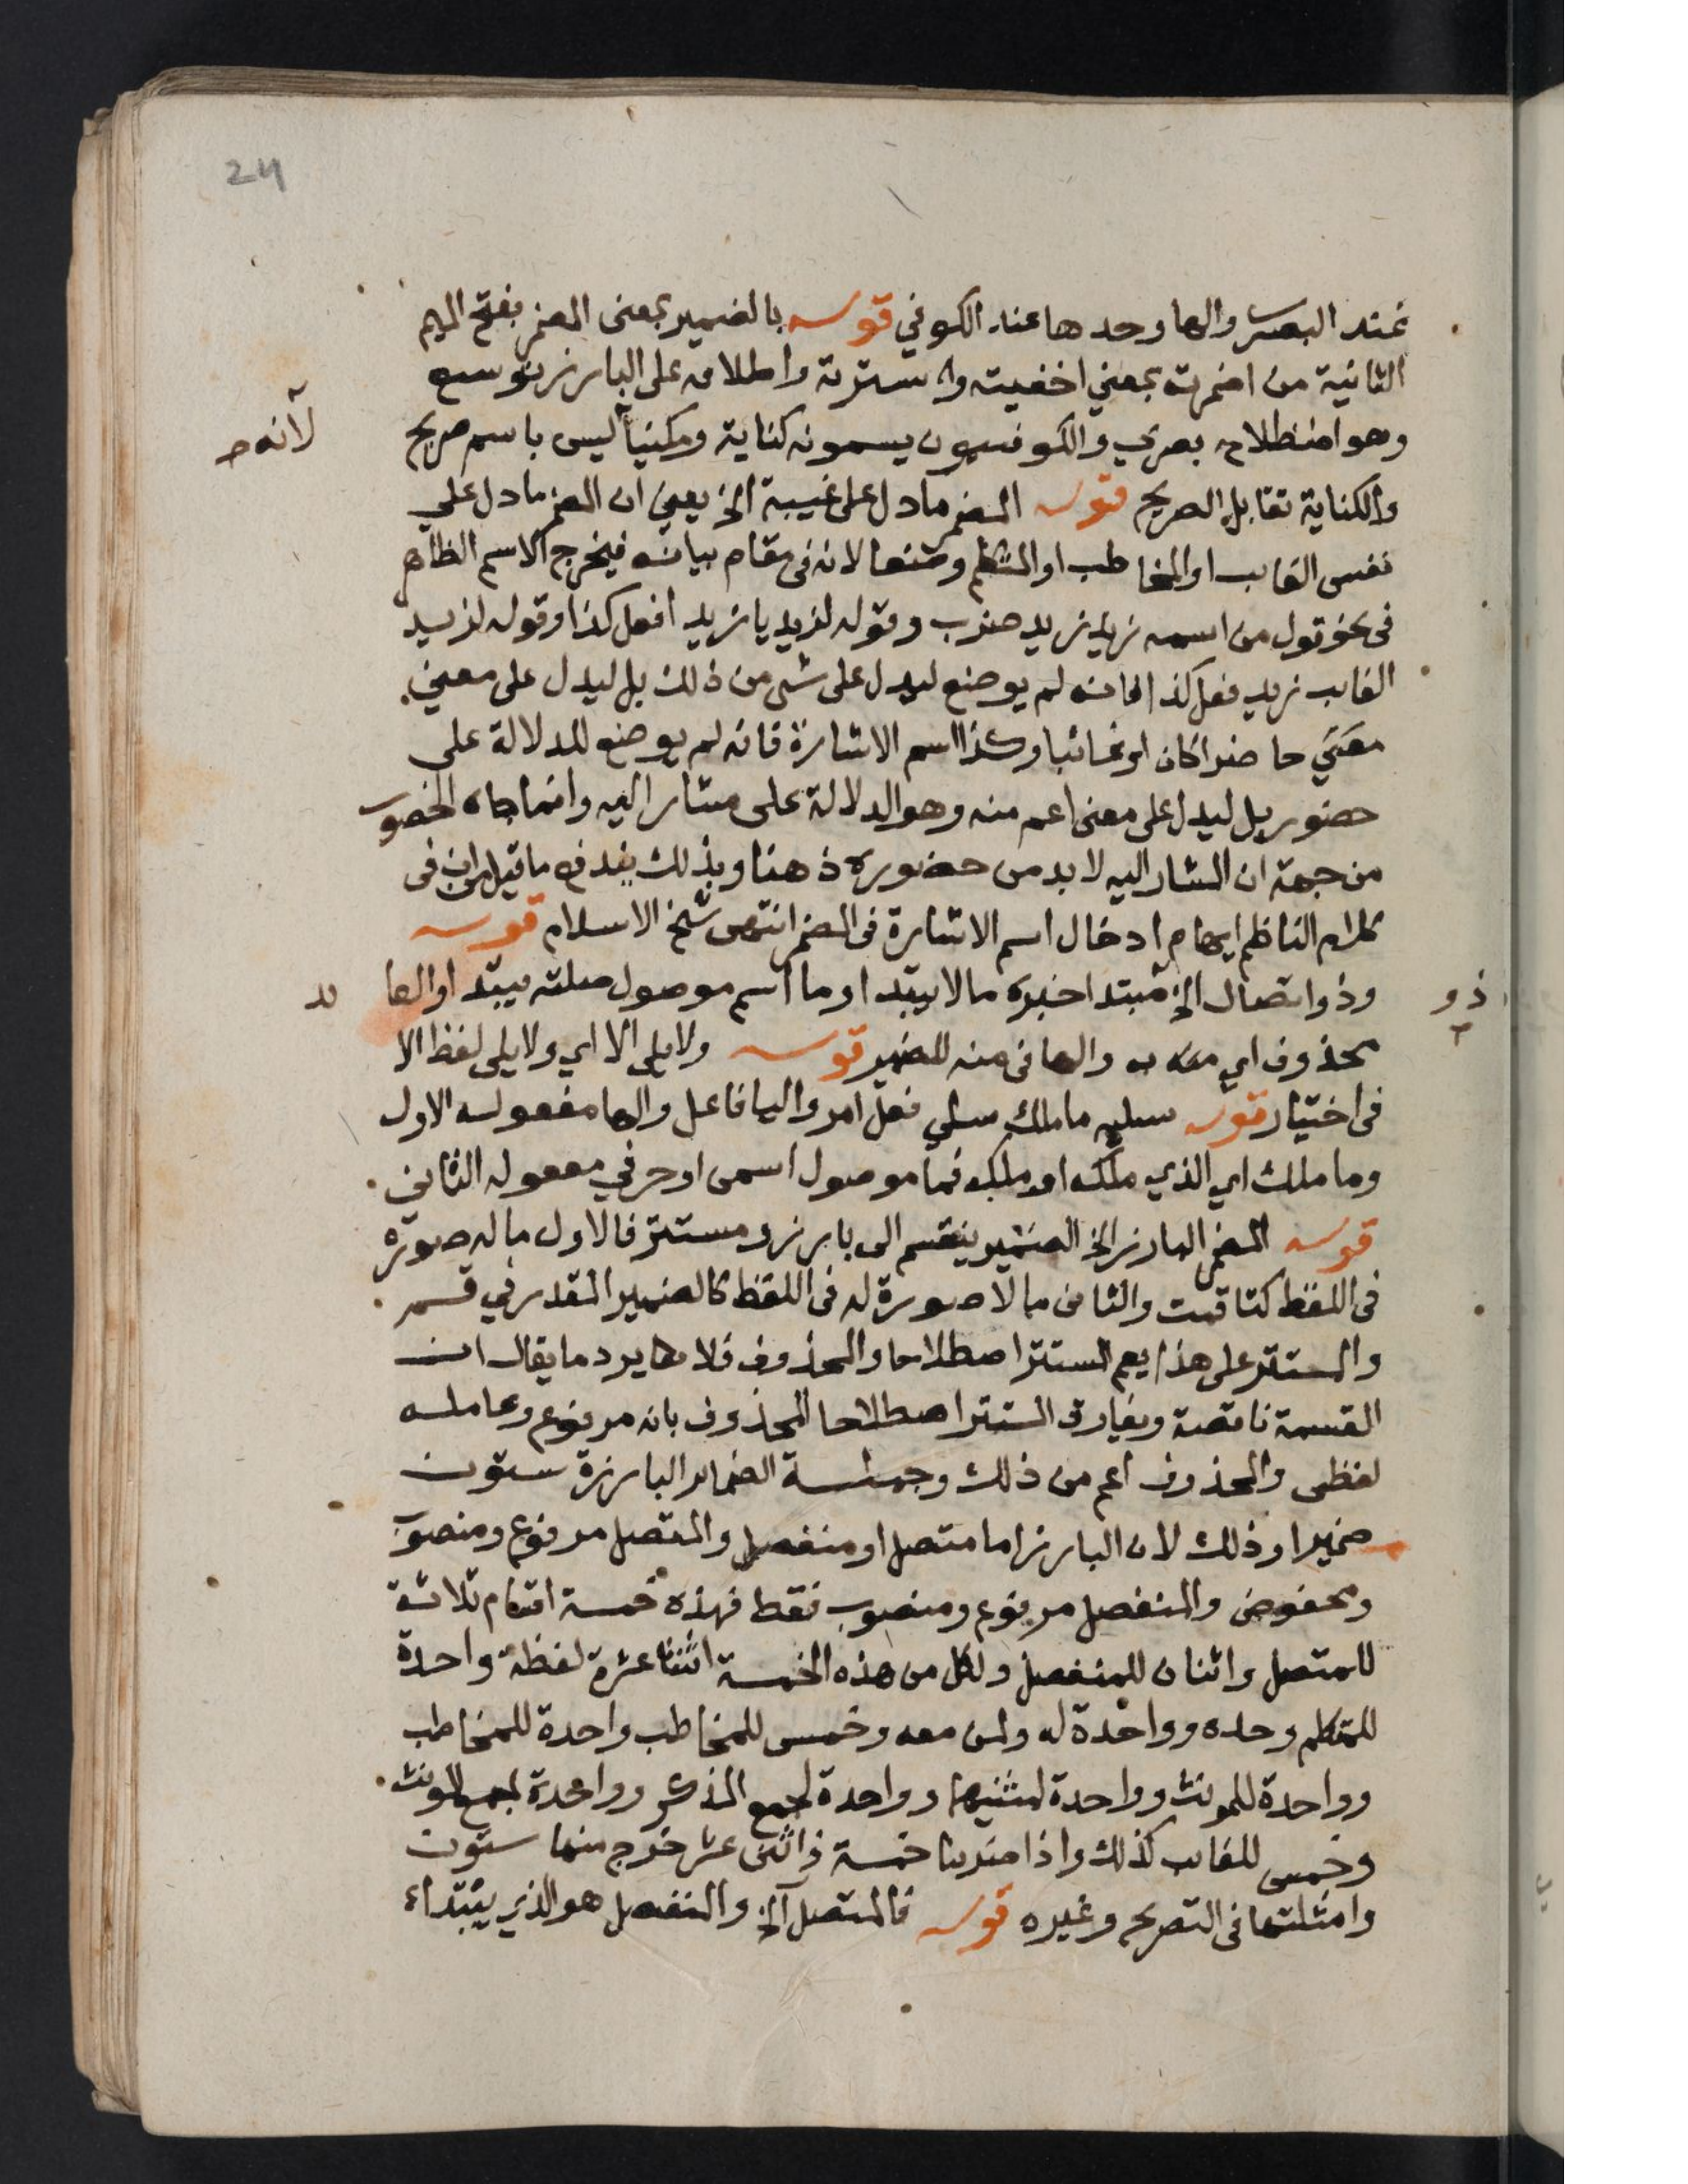 24
عند البصري والها وحدها عند الكوفي قوله بالضمير بمعنى المضمر بفتح الميم
الثانية من اضمرته بمعني اخفيته وا سترته واطلاقه على البارز توسع
وهو اصطلاح بصري والكوفيون يسمونه كناية ومكنيا ليس باسم صريح
لانه صح
والكناية تقابل الصريح قوله المضمر ما دل على غيبة الخ يعني ان المضمر ما دل علي
نفس الغايب او المخاطب او المتكلم وضعا لانه في مقام بيانه فيخرج الاسم الظاهر
في نحو قول من اسمه زيد زيد ضرب وقوله لزيد يا زيد افعل كذا وقوله لزيد
الغايب زيد فعل كذا فانه لم يوضع ليدل على شى من ذلك بل ليدل على معني
معين حاضرا كان او غائبا وكذا اسم الاشارة فانه لم يوضع للدلالة على
حضور بل ليدل على معنى اعم منه وهو الدلالة على مشار اليه وانما جاء الحضور
من جهة ان المشار اليه لا بد من حضوره ذهنا وبذلك يندفع ما قيل ان في
كلام الناظم ايهام ادخال اسم الاشارة في المضمر انتهى شيخ الاسلام قوله
وذو اتصال الخ مبتدا خبره ما لا يبتد او ما اسم موصول صلته يبتد او الها
ذو
محذوف اي به والها في منه للضمير قوله ولا يلي الا اي ولا يلي لفظ الا
في اختيار قوله سليه ما ملك سلي فعل امر واليا فاعل والها مفعوله الاول
وما ملك اي الذي ملكه او ملكه فما موصول اسمى او حرفي مفعوله الثاني
قوله المضمر البارز الخ الضمير ينقسم الى بارز ومستتر فالاول ما له صورة
في اللفظ كتا قمت والثاني ما لا صورة له في اللفظ كالضمير المقدر في قم
والمستتر على هذا يعم المستتر اصطلاحا والمحذوف فلا يرد ما يقال ان
القسمة ناقصة ويفارق المستتر اصطلاحا المحذوف بانه مرفوع وعامله
لفظى والمحذوف اعم من ذلك وجملة الضماير البارزة ستون
ضميرا وذلك لان البارز اما متصل او منفصل والمتصل مرفوع ومنصوب
ومخفوض والمنفصل مرفوع ومنصوب فقط فهذه خمسة اقسام ثلاثة
للمتصل واثنان للمنفصل ولكل من هذه الخمسة اثنتا عشرة لفظة واحدة
للمتكلم وحده وواحدة له ولمن معه وخمس للمخاطب واحدة للمخاطب
وواحدة للمونث وواحدة لمثنيهما وواحدة لجمع المذكر وواحدة لجمع المونث
وخمس للغايب كذلك واذا ضربنا خمسة في اثنى عشر خرج منها ستون
وامثلتها في التصريح وغيره قوله فالمتصل الخ والمنفصل هو الذي يبتداء